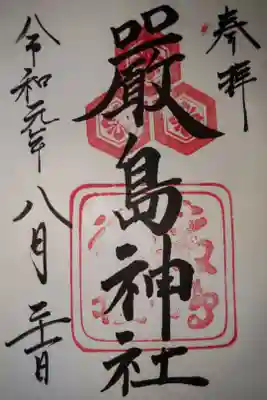 奉拝
嚴島神社
令和元年八月二十日